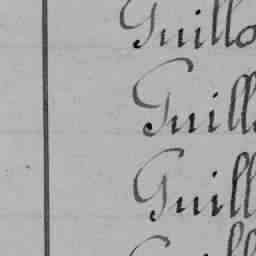 Guillo
Guill
Guill